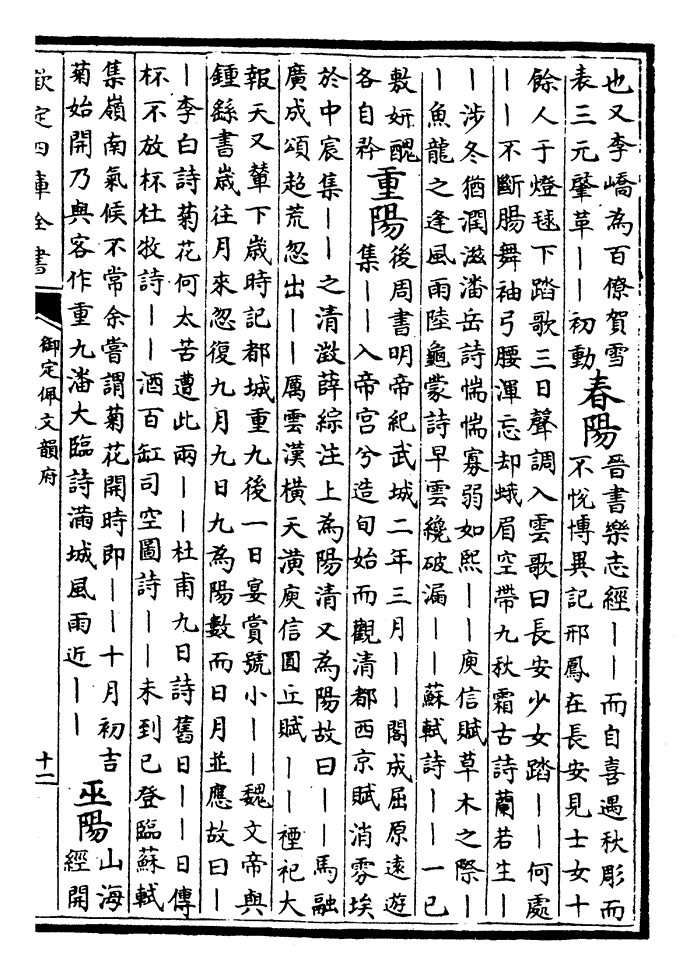 也又李嶠為百僚賀雪
表三元肇革||初動
春陽
晉書樂志經||而自喜遇秋彫而
不悅博異記邢鳳在長安見士女十
餘人于燈毬下踏歌三日聲調入雲歌曰長安少女踏||何處
||不斷腸舞袖弓腰渾忘却蛾眉空帶九秋霜古詩蘭若生|
|涉冬猶潤滋潘岳詩惴惴寡弱如熙||庾信賦草木之際|
|魚龍之逢風雨陸龜蒙詩早雲纔破漏||蘇軾詩||一已
敷妍醜
各自矜
重陽
後周書明帝紀武城二年三月||閣成屈原遠遊
集||入帝宮兮造旬始而觀清都西京賦消雰埃
於中宸集||之清澂薛綜注上為陽清又為陽故曰||馬融
廣成頌超荒忽出||厲雲漢橫天潢庾信圓丘賦||禋祀大
報天又輦下歲時記都城重九後一日宴賞號小||魏文帝與
鍾繇書歲往月來忽復九月九日九為陽數而日月並應故曰|
|李白詩菊花何太苦遭此兩||杜甫九日詩舊日||日傳
杯不放杯杜牧詩||酒百缸司空圖詩||未到已登臨蘇軾
集嶺南氣候不常余嘗謂菊花開時即||十月初吉
菊始開乃與客作重九潘大臨詩滿城風雨近||
巫陽
山海
經開
欽定四庫全書
御定佩文韻府
十二